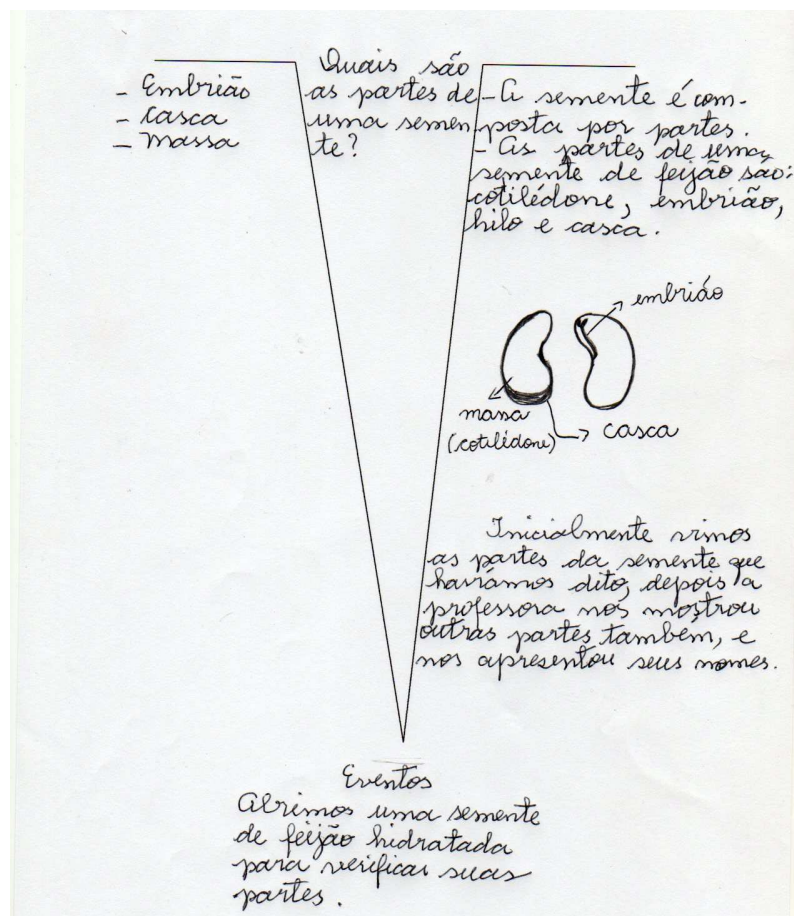 - Embrião
- casca
- massa
Quais são
as partes de
uma semen
te?
- A semente é com-
posta por partes.
- As partes de uma
semente de feijão são:
cotilédone, embrião,
hilo e casca.
embrião
massa
(cotilédone)
casca
Inicialmente vimos
as partes da semente que
havíamos dito, depois a
professora nos mostrou
outras partes também, e
nos apresentou seus nomes.
Eventos
Abrimos uma semente
de feijão hidratada
para verificar suas
partes.